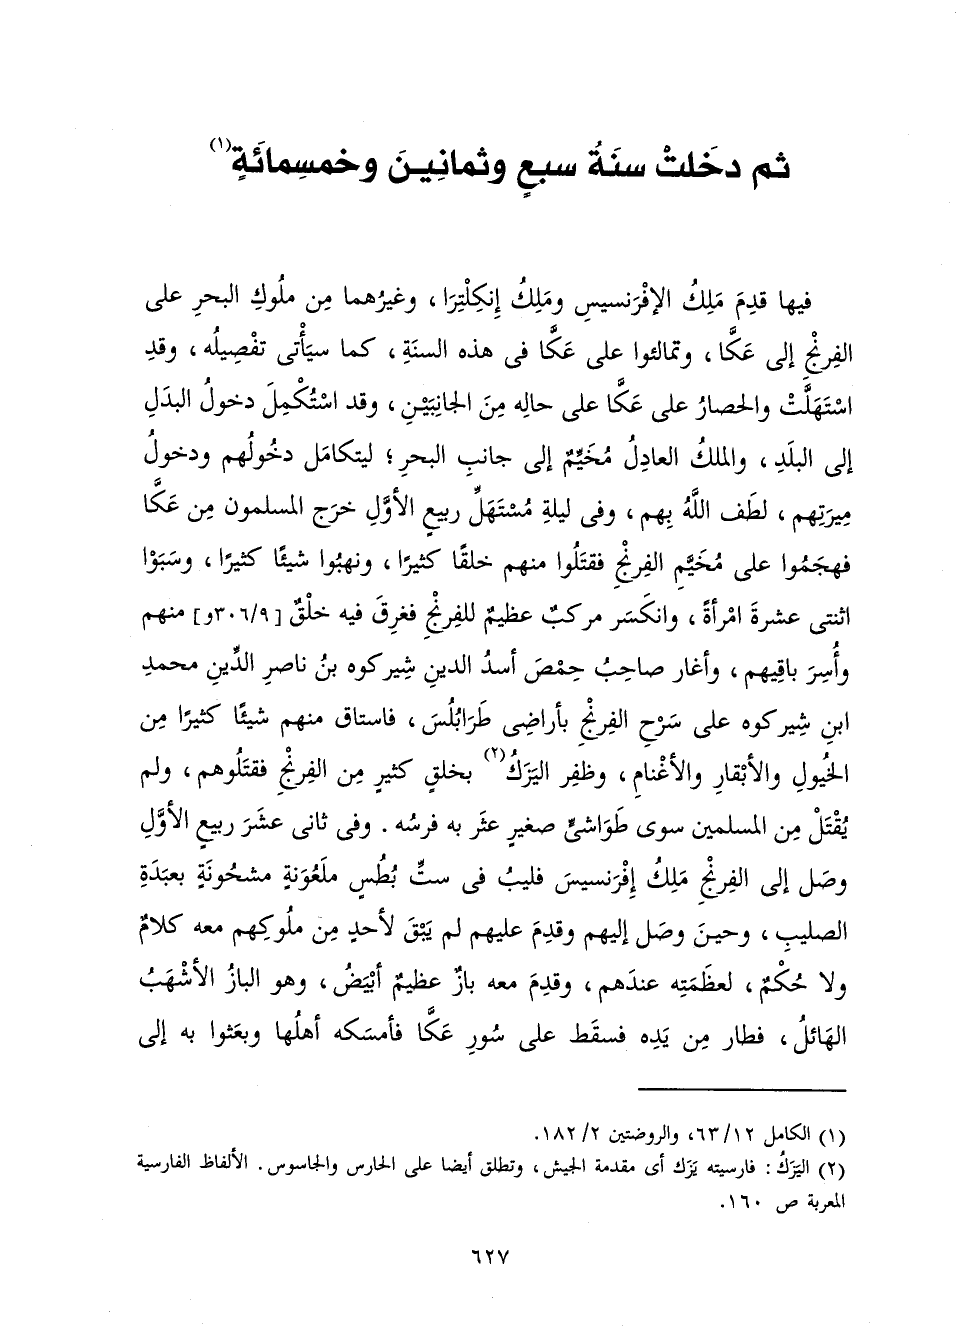 ثم دخَلتْ سنَةُ سبعٍ وثمانِينَ وخمسِمائَةٍ(١)
فيها قدِمَ مَلِكُ الإفْرَنسيسِ ومَلِكُ إنكِلْتِرَا ، وغيرُهما مِن ملُوكِ البحرِ على
الفِرنْجِ إلى عَكَّا ، وتمالئوا على عَكَّا فى هذه السنَةِ ، كما سيَأْتى تفْصِيلُه ، وقدِ
اسْتَهَلَّتْ والحصارُ على عَكَّا على حالِه مِنَ الجانِبَيْنِ ، وقد اسْتُكْمِلَ دخولُ البدَلِ
إلى البلَدِ ، والملكُ العادِلُ مُخَيِّمٌ إلى جانبِ البحرِ ؛ ليتكامَل دخُولُهم ودخولُ
مِيرَتِهم ، لطَف اللَّهُ بِهم ، وفى ليلةِ مُسْتَهَلِّ ربيعٍ الأوَّلِ خرَج المسلمون مِن عَكَّا
فهجَمُوا على مُخَيَّمِ الفِرنْجِ فقتَلُوا منهم خلقًا كثيرًا ، ونهبُوا شيئًا كثيرًا ، وسَبَوْا
اثنتى عشرةَ امْرأةً ، وانكَسَر مركبٌ عظيمٌ للفِرنْجِ فغرِقَ فيه خلْقٌ [٣٠٦/٩و] منهم
وأُسِرَ باقِيهم ، وأغار صاحِبُ حِمْصَ أسدُ الدينِ شِيركوه بنُ ناصرِ الدِّينِ محمدِ
ابنِ شِيركوه على سَرْحِ الفِرنْجِ بأراضِى طَرَابُلُسَ ، فاستاق منهم شيئًا كثيرًا مِن
الخُيولِ والأبْقارِ والأغْنامِ ، وظفِر اليَزَكُ(٢) بخلقٍ كثيرٍ مِن الفِرنْجِ فقتَلُوهم ، ولم
يُقْتَلْ مِن المسلمين سوى طَوَاشىٍّ صغيرٍ عثَر به فرسُه . وفى ثانى عشَرَ ربيعٍ الأوَّلِ
وصَل إلى الفِرنْجِ مَلِكُ إفْرَنسيسَ فليبُ فى ستِّ بُطُسٍ ملَعُوَنةٍ مشحُونَةٍ بعبَدَةِ
الصليبِ ، وحينَ وصَل إليهم وقدِمَ عليهم لم يَبْقَ لأحدٍ مِن ملُوكِهم معه كلامٌ
ولا حُكْمٌ ، لعظَمَتِه عندَهم ، وقدِمَ معه بازٌ عظيمٌ أبْيَضُ ، وهو البازُ الأشْهَبُ
الهَائلُ ، فطار مِن يَدِه فسقَط على سُورِ عَكَّا فأمسَكه أهلُها وبعَثوا به إلى
(١) الكامل ٦٣/١٢، والروضتين ١٨٢/٢.
(٢) اليَزَكُ : فارسيته يَزَك أى مقدمة الجيش ، وتطلق أيضا على الحارس والجاسوس . الألفاظ الفارسية
المعربة ص ١٦٠.
٦٢٧